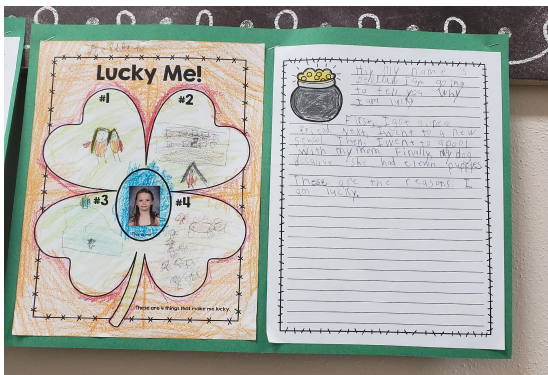 Lucky Me!
#1
#2
#3
#4
These are 4 things that make me lucky.
my name is
I am going
to tell you why
I am lucky
First, I got a new
friend Next, I went to a new
school Then, I went to a pool
with my mom. Finally, my dog
because she had eleven puppies
These are the reasons I
am lucky.